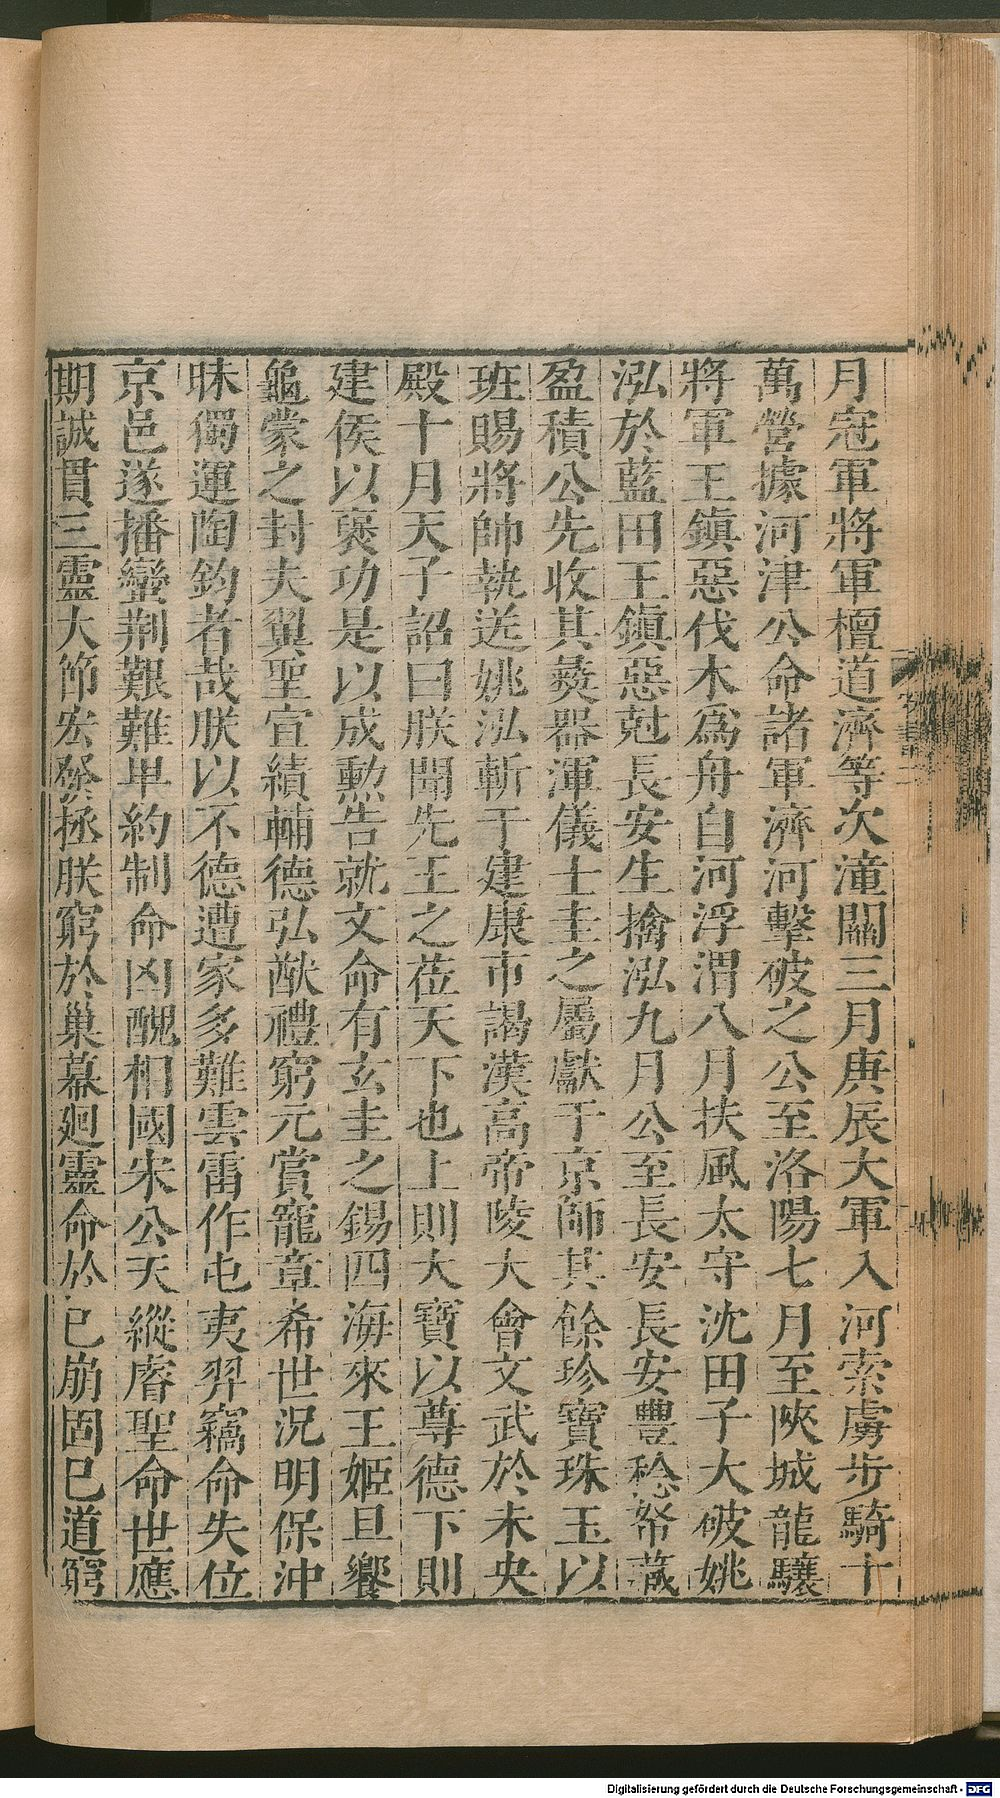 月冠軍將軍檀道濟等次潼關三月庚辰大軍入河索虜步騎十
萬營據河津公命諸軍濟河擊破之公至洛陽七月至陝城龍驤
將軍王鎮惡伐木爲舟自河浮渭八月扶風太守沈田子大破姚
泓於藍田王鎮惡尅長安生擒泓九月公至長安長安豐稔帑藏
盈積公先收其彝器渾儀土圭之屬獻于京師其餘珍寶珠玉以
班賜將帥執送姚泓斬于建康市謁漢高帝陵大會文武於未央
殿十月天子詔曰朕聞先王之莅天下也上則大寶以尊德下則
建侯以褒功是以成勳告就文命有玄圭之錫四海來王姬旦饗
龜蒙之封夫翼聖宣績輔德弘猷禮窮元賞寵章希世況明保沖
昧獨運陶鈞者哉朕以不德遭家多難雲雷作屯夷羿竊命失位
京邑遂播蠻荆艱難卑約制命凶醜相國宋公天縱睿聖命世應
期誠貫三靈大節宏發拯朕窮於巢幕廻靈命於已崩固已道窮
Digitalisierung gefördert durch die Deutsche Forschungsgemeinschaft - DFG